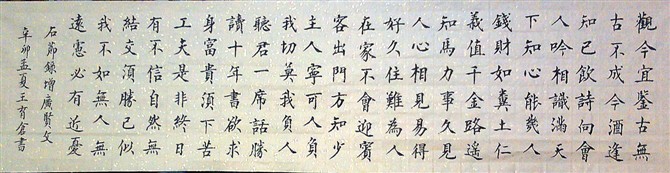 觀今宜鑒古無
古不成今酒逢
知己飲詩向會
人吟相識滿天
下知心能幾人
錢財如糞土仁
義值千金路遙
知馬力事久見
人心相見易得
好久住難為人
在家不會迎賓
客出門方知少
主人寧可人負
我切莫我負人
聽君一席話勝
讀十年書欲求
身富貴須下苦
工夫是非終日
有不信自然無
結交須勝己似
我不如無人無
遠慮必有近憂
右節錄增廣賢文
辛卯孟夏王育倉書